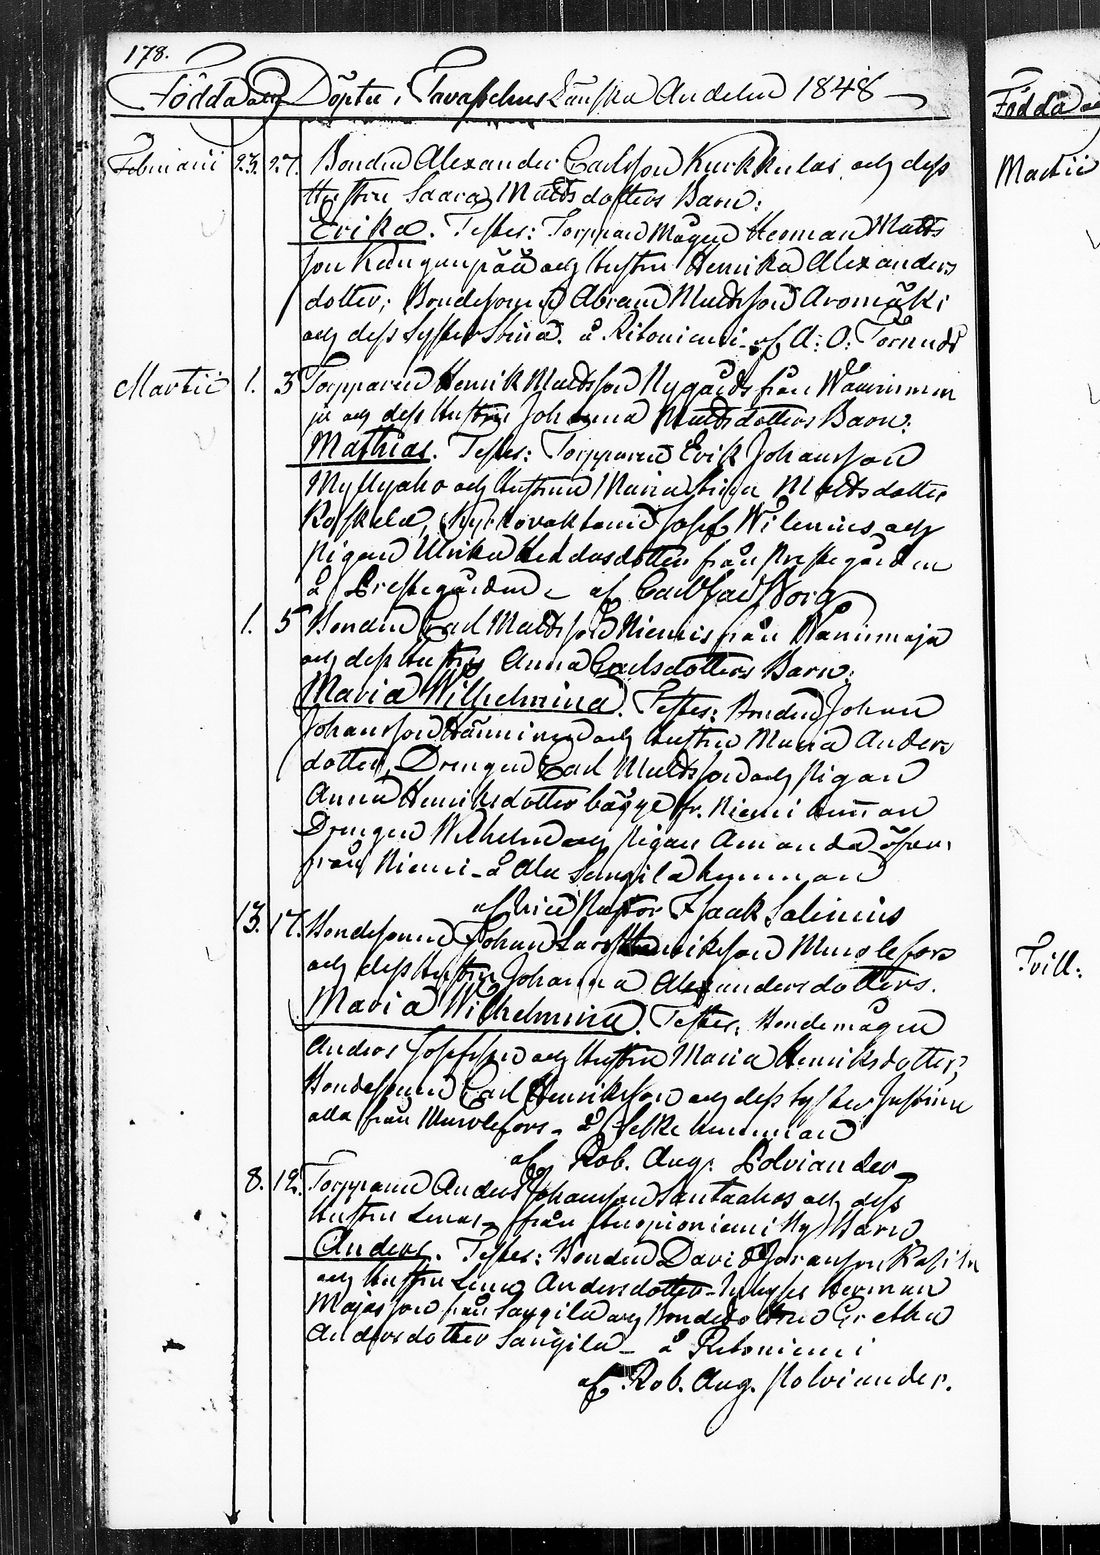 178.
Födda och Döpte i Tavastehus Länska Andelen 1848
Februarii 23. 27. Bonden Alexander Carlsson Kurkkulas och dess
Hustru Saara Mattsdotters Barn:
Erika. Testes: Torpparemågen Herman Matts
son Kungunpää och Hustru Henrika Alexanders
dotter; Bondesonen Abram Mattsson Aromäki
och dess syster Stina. å Ritoniemi af A: O: Törnudd
Martii 1. 3 Torpparen Henrik Mattsson Nygårds från
och dess Hustru Johanna Mattsdotters Barn:
Mathias. Testes: Torpparen Erik Johansson
Myllyaho och Hustrun Maria Mattsdotter
Koskela, Kyrkovaktaren Josef Wilenius och
Pigan Ulrika från Prestegården
å Prestegården af Carl Borg
1. 5 Bonden Carl Mattsson Niemis från Wänninmaja
och dess Hustru Anna Carlsdotters Barn:
Maria Wilhelmina. Testes: Bonden Johan
Johansson Hänninen och Hustrun Maria Anders
dotter, Drengen Carl Mattsson och Pigan
Anna Henriksdotter bägge fr. Niemi hemman
Drengen Wilhelm och Pigan Amanda
från Niemi å Ala Savgila hemman
af vice Pastor Isaak Salenius
13. 17. Bondesonen Johan Lars Henriksson Murolefors
och dess Hustru Johanna Alexandersdotters.
Maria Wilhelmina. Testes: Bondemågen
Anders Josefsson och Hustru Maria Henriksdotter;
Bondesonen Carl Henriksson och dess syster Justina
alla från Murolefors å hemman
af Rob. Aug. Polviander
8. 12. Torpparen Anders Johansson Santaahos och dess
Hustru Lenas från Barn
Anders. Testes: Bonden David Johansson
och Hustru Lena Andersdotter Inhyses Herman
Majasson från Savgila och Bondedottren Gretha
Andersdotter Savgila å Ritoniemi
af Rob. Aug. Polviander.
Födda och
Martii
Tvill: